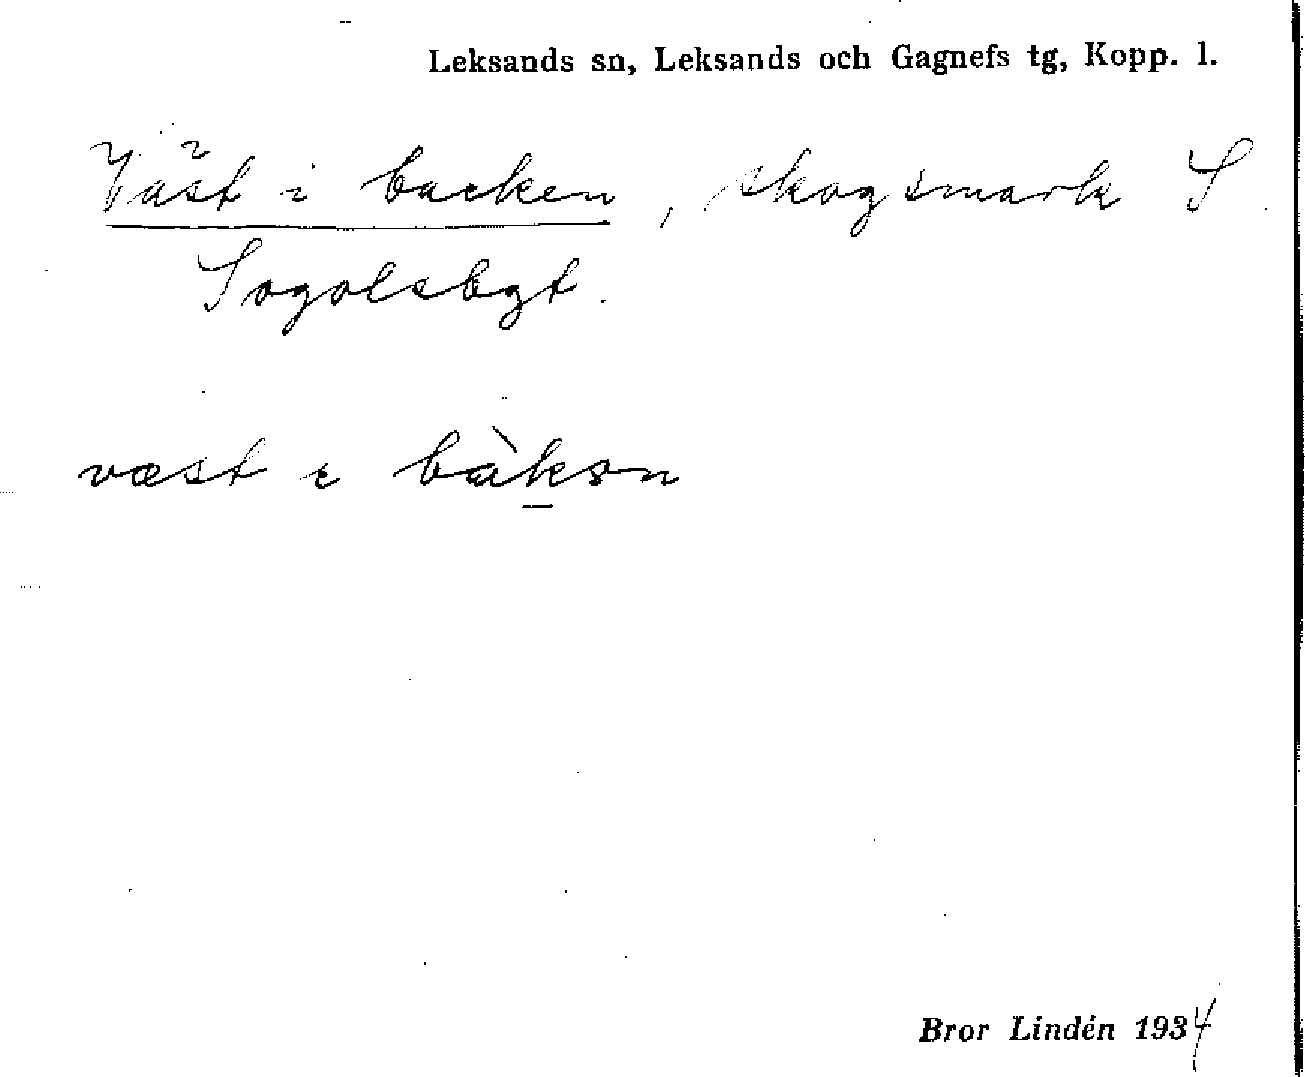 Leksands sn, Leksands och Gagnefs tg, Kopp. l.
Väst i backen, skogsmark S
Sogolsbgt.
væst ɛ bàkɘn
Bror Lindén 1934